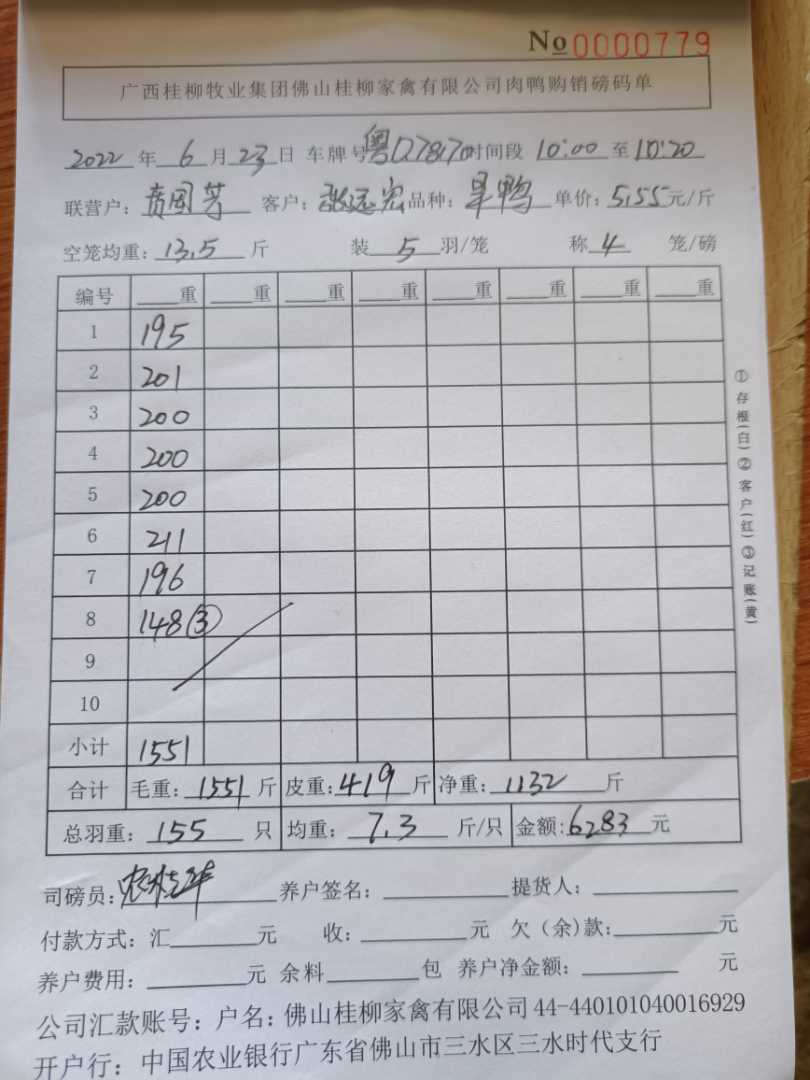 No 0000779
广西桂柳牧业集团佛山桂柳家禽有限公司肉鸭购销磅码单
2022 年 6 月 23 日 车牌号 粤Q78170 时间段 10:00 至 10:20
联营户: 国芳 客户: 张远宏 品种: 鸭 单价: 5.55 元/斤
空笼均重: 13.5 斤 装 5 羽/笼 称 4 笼/磅
编号 重 重 重 重 重 重 重 重
1 195
2 201
3 200
4 200
5 200
6 211
7 196
8 148 ③
9
10
小计 1551
合计 毛重: 1551 斤 皮重: 419 斤 净重: 1132 斤
总羽重: 155 只 均重: 7.3 斤/只 金额: 6283 元
司磅员: 养户签名: 提货人:
付款方式: 汇 元 收: 元 欠(余)款: 元
养户费用: 元 余料 包 养户净金额: 元
公司汇款账号: 户名: 佛山桂柳家禽有限公司 44-440101040016929
开户行: 中国农业银行广东省佛山市三水区三水时代支行
①存根(白)②客户(红)③记账(黄)